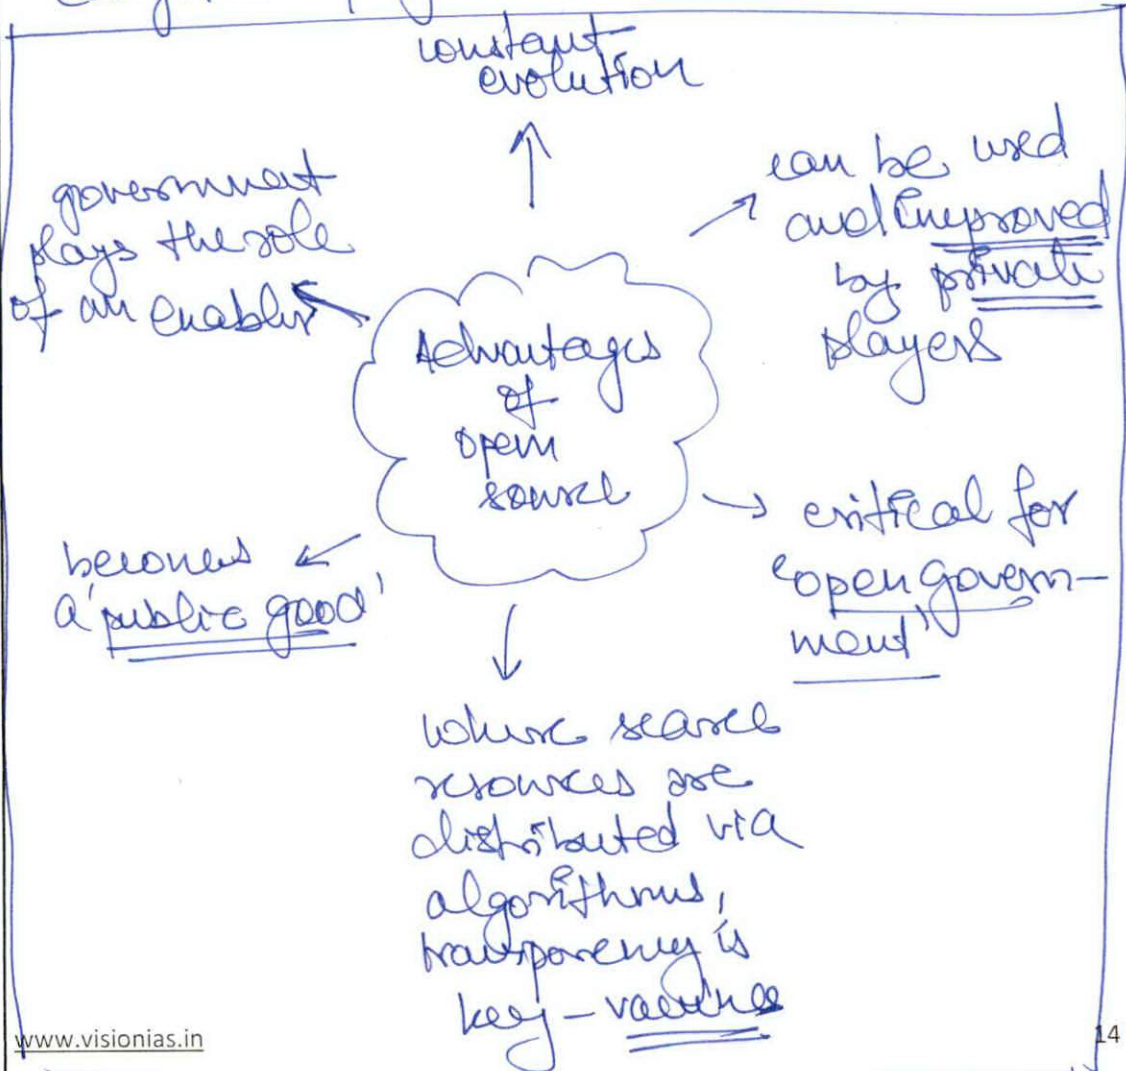 constant
evolution
government
plays the role
of an enabler
can be used
and improved
by private
players
Advantages
of
open
source
becomes
a 'public good'
critical for
'open govern-
ment'
where scarce
resources are
distributed via
algorithms,
transparency is
key - vaccines
www.visionias.in
14